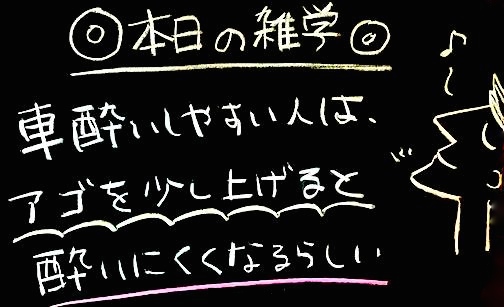 ◎本日の雑学◎
車酔いしやすい人は、
アゴを少し上げると
酔いにくくなるらしい